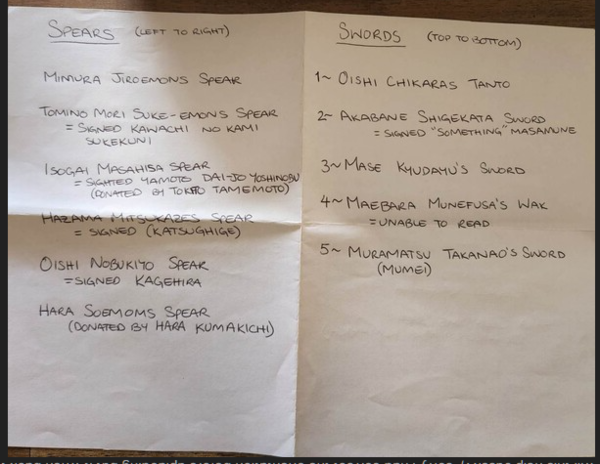 SPEARS (LEFT TO RIGHT)
MIMURA JIROEMONS SPEAR
TOMINO MORI SUKE-EMONS SPEAR
= SIGNED KAWACHI NO KAMI
SUKEKUNI
ISOGAI MASAHISA SPEAR
= SIGHTED YAMOTO DAI-JO YOSHINOBU
(DONATED BY TOKITO TAMEMOTO)
HAZAMA MITSUKAZES SPEAR
= SIGNED (KATSUGHIGE)
OISHI NOBUKIYO SPEAR
= SIGNED KAGEHIRA
HARA SOEMOMS SPEAR
(DONATED BY HARA KUMAKICHI)
SWORDS (TOP TO BOTTOM)
1~ OISHI CHIKARAS TANTO
2~ AKABANE SHIGEKATA SWORD
= SIGNED "SOMETHING" MASAMUNE
3~ MASE KYUDAYU'S SWORD
4~ MAEBARA MUNEFUSA'S WAK
= UNABLE TO READ
5~ MURAMATSU TAKANAO'S SWORD
(MUMEI)